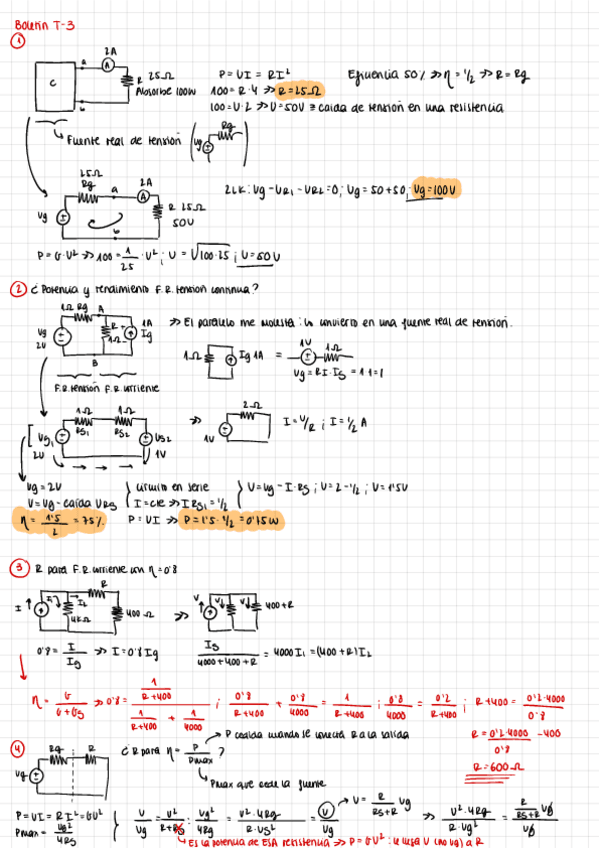 Boletín T-3
1
2A
a
A
C
R 25Ω
Absorbe 100W
b
P = UI = RI²
100 = R·4 ⇒ R = 25Ω
100 = U·2 ⇒ U = 50V ≡ caída de tensión en una resistencia
Eficiencia 50% ⇒ η = 1/2 ⇒ R = Rg
Fuente real de tensión
Rg
Vg
25Ω
Rg
a
2A
A
Vg
R 25Ω
50V
b
2LK: Vg - UR1 - UR2 = 0; Vg = 50 + 50; Vg = 100V
P = G·U² ⇒ 100 = 1/25 · U²; U = √100·25; U = 50V
2 ¿Potencia y rendimiento F.R. tensión continua?
1Ω Rg A
Vg
2V
R
1Ω
1A
Ig
B
⇒ El paralelo me molesta: lo convierto en una fuente real de tensión.
1Ω
Ig 1A
=
1V
1Ω
Vg = R I · Is = 1·1 = 1
F.R. tensión F.R. corriente
1Ω
1Ω
RS1
RS2
VS1
2V
VS2
1V
⇒
2Ω
1V
I = U/R; I = 1/2 A
Vg = 2V
V = Vg - caída URS
Circuito en serie
I = cte ⇒ I RS1 = 1/2
V = Vg - I·RS; V = 2 - 1/2; V = 1'5V
η = 1'5/2 = 75%
P = UI ⇒ P = 1'5 · 1/2 = 0'75W
3 R para F.R. corriente con η = 0'8
R
I
I1
I2
4KΩ
400Ω
⇒
V
V
V
400+R
0'8 = I/Ig ⇒ I = 0'8 Ig
IS/4000+400+R = 4000I1 = (400+R)I2
η = G/G+GS ⇒ 0'8 = 1/R+400 / 1/R+400 + 1/4000; 0'8/R+400 + 0'8/4000 = 1/R+400; 0'8/4000 = 0'2/R+400; R+400 = 0'2·4000/0'8
R = 0'2·4000/0'8 - 400
R = 600Ω
4
Rg
R
Vg
¿R para η = P/Pmax ?
P cedida cuando se conecta R a la salida
Pmax que cede la fuente
P = UI = RI² = GU²
Pmax = Ug²/4RS
V/Vg = V²/R+RS : Vg²/4Rg = V²·4Rg/R·VS² = V/Vg
V = R/RS+R Vg
⇒ V²·4Rg/R·Vg² = R/RS+R Vg/Vg
Es la potencia de ESA resistencia ⇒ P = GU²: u llega V (no Vg) a R